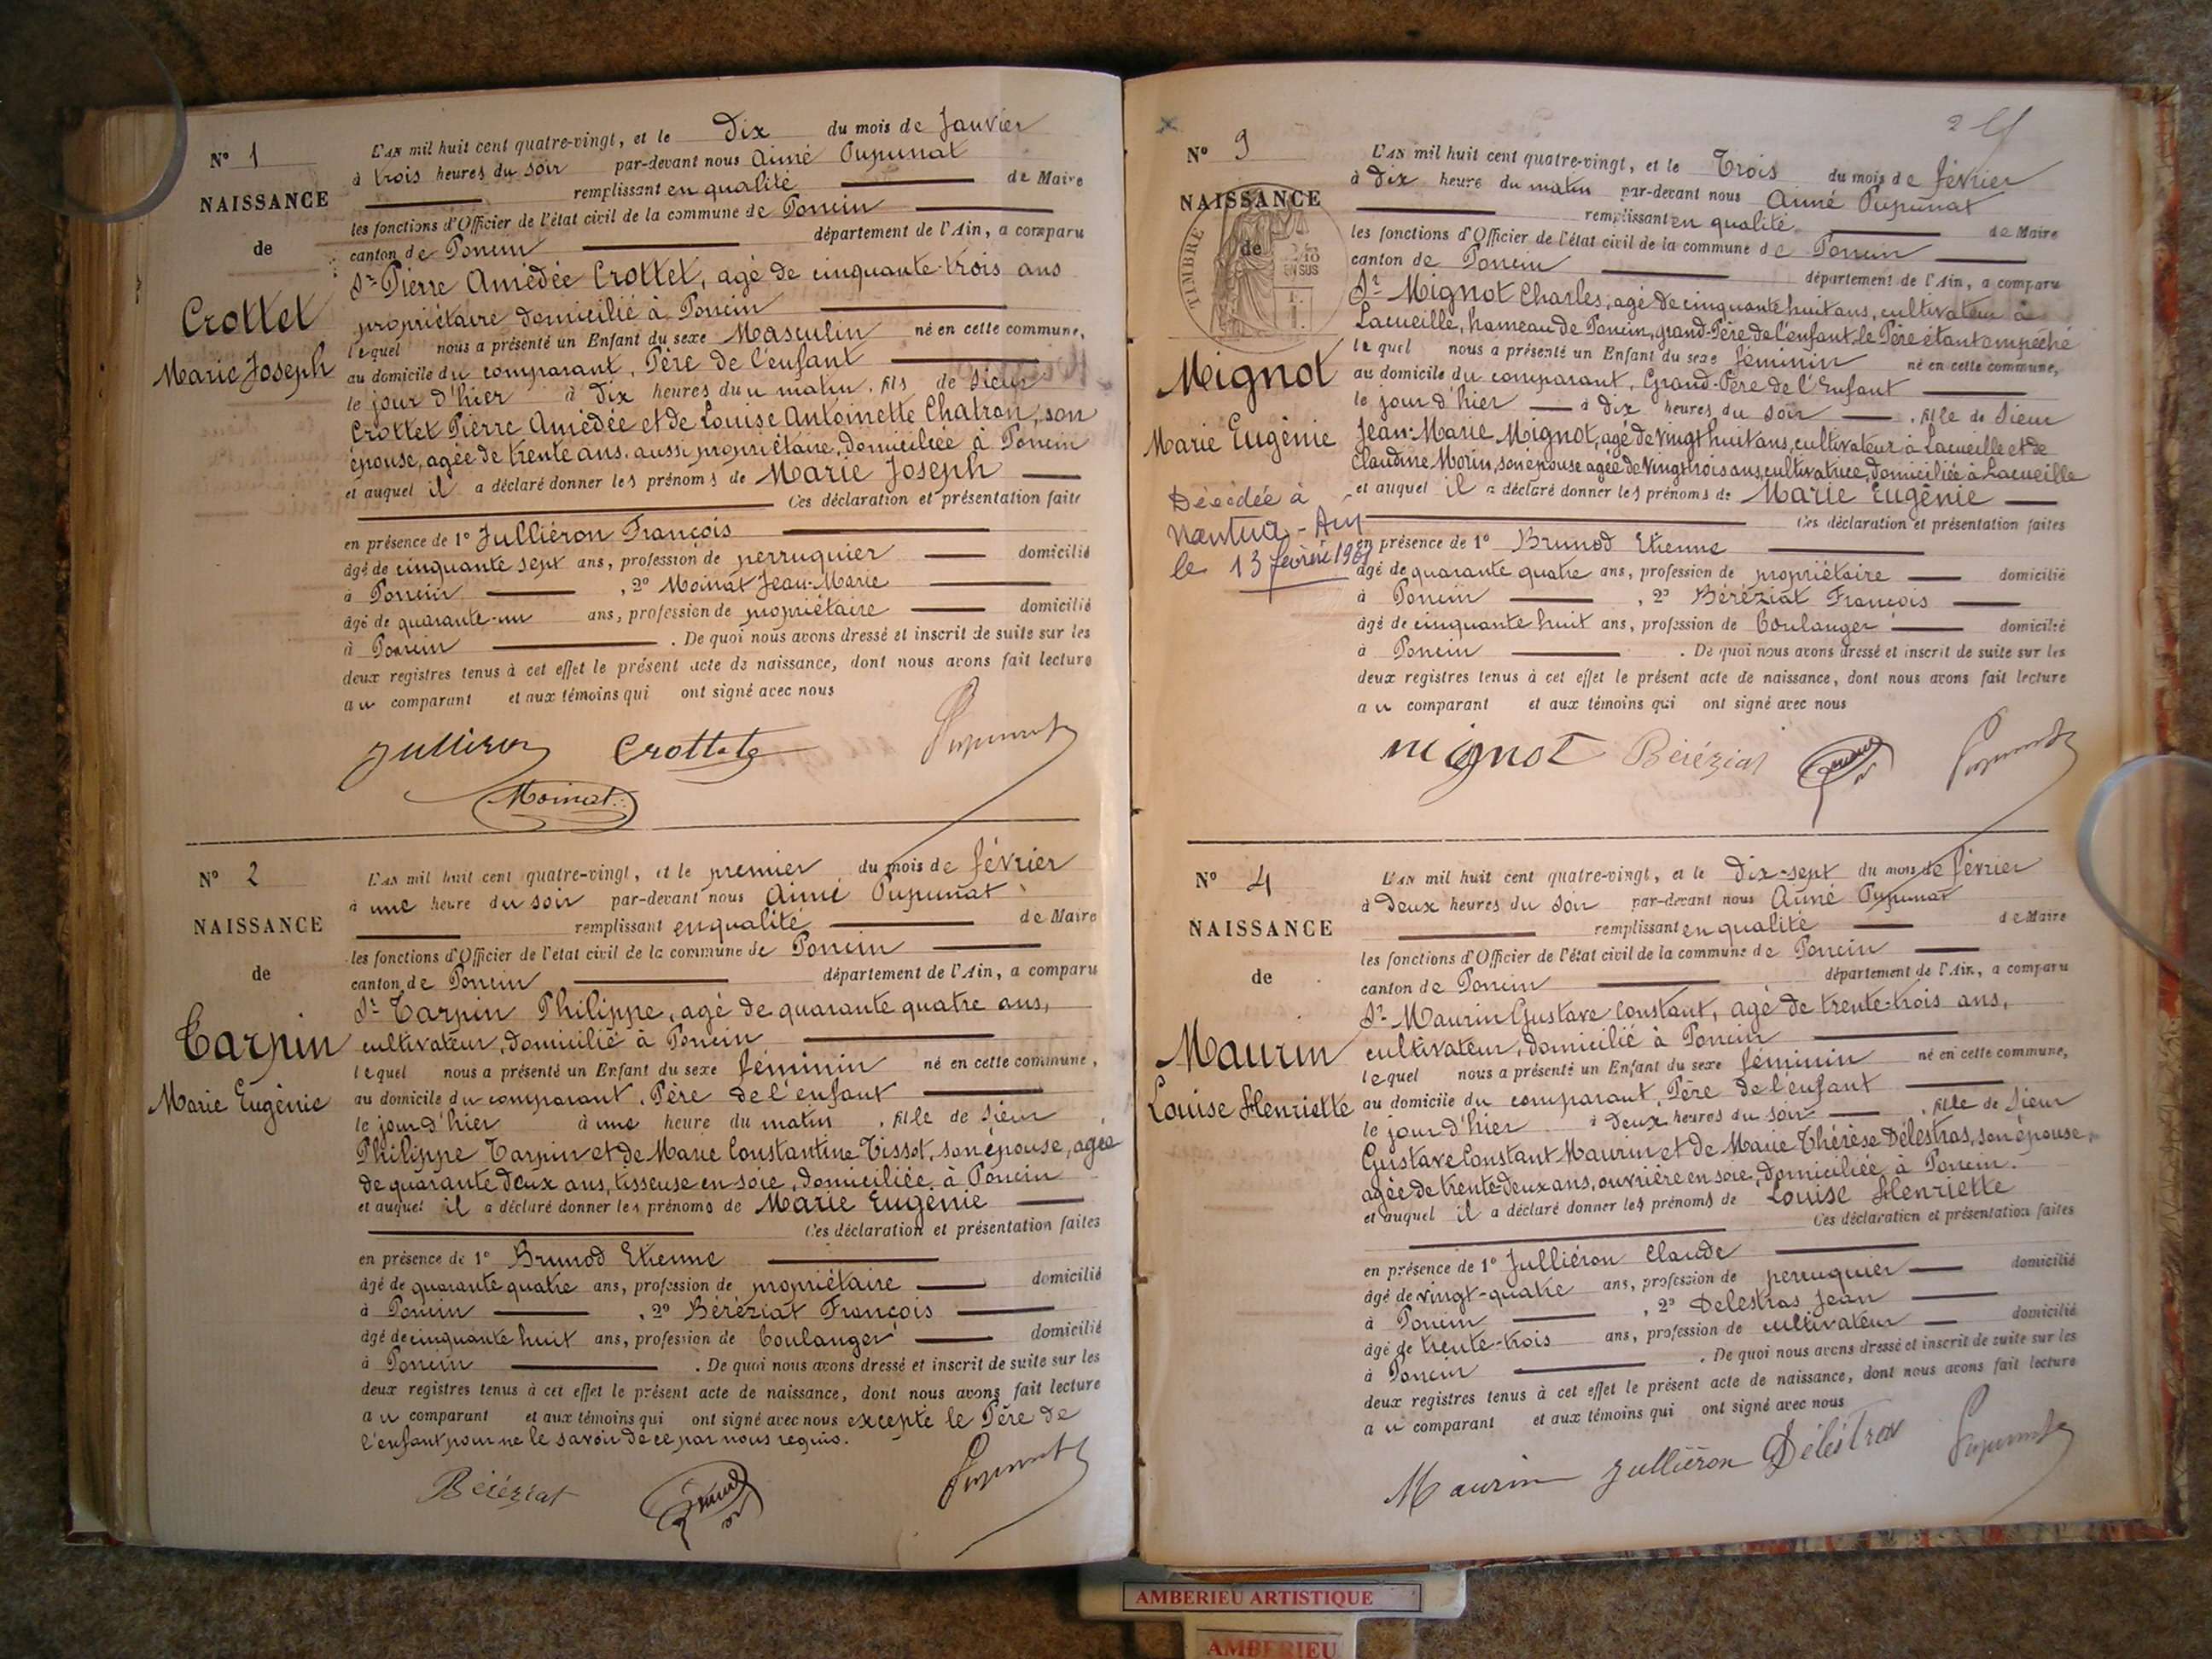 N° 1
NAISSANCE
de
Crottet
Marie Joseph
L'AN mil huit cent quatre-vingt, et le Dix du mois de Janvier
à trois heures du soir par-devant nous Aimé Pupunat
remplissant en qualité de Maire
les fonctions d'Officier de l'état civil de la commune de Poncin
canton de Poncin département de l'Ain, a comparu
Sr Pierre Amédée Crottet, agé de cinquante-trois ans
propriétaire domicilié à Poncin
lequel nous a présenté un Enfant du sexe Masculin né en cette commune,
au domicile du comparant, Père de l'enfant
le jour d'hier à Dix heures du matin, fils de Sieur
Crottet Pierre Amédée et de Louise Antoinette Chatron, son
épouse, agée de trente ans, aussi propriétaire, domiciliée à Poncin
et auquel il a déclaré donner les prénoms de Marie Joseph
Ces déclaration et présentation faite
en présence de 1° Julliéron François
âgé de cinquante sept ans, profession de perruquier domicilié
à Poncin, 2° Moinat Jean-Marie
âgé de quarante-un ans, profession de propriétaire domicilié
à Poncin. De quoi nous avons dressé et inscrit de suite sur les
deux registres tenus à cet effet le présent acte de naissance, dont nous avons fait lecture
au comparant et aux témoins qui ont signé avec nous
Julliéron Crottet Pupunat
Moinat
N° 2
NAISSANCE
de
Tarpin
Marie Eugénie
L'AN mil huit cent quatre-vingt, et le premier du mois de février
à une heure du soir par-devant nous Aimé Pupunat
remplissant en qualité de Maire
les fonctions d'Officier de l'état civil de la commune de Poncin
canton de Poncin département de l'Ain, a comparu
Sr Tarpin Philippe, agé de quarante quatre ans,
cultivateur, domicilié à Poncin
lequel nous a présenté un Enfant du sexe féminin né en cette commune,
au domicile du comparant, Père de l'enfant
le jour d'hier à une heure du matin, fille de Sieur
Philippe Tarpin et de Marie Constantine Tissot, son épouse, agée
de quarante deux ans, tisseuse en soie, domiciliée à Poncin
et auquel il a déclaré donner les prénoms de Marie Eugénie
Ces déclaration et présentation faites
en présence de 1° Brunod Etienne
âgé de quarante quatre ans, profession de propriétaire domicilié
à Poncin, 2° Béréziat François
âgé de cinquante huit ans, profession de Boulanger domicilié
à Poncin. De quoi nous avons dressé et inscrit de suite sur les
deux registres tenus à cet effet le présent acte de naissance, dont nous avons fait lecture
au comparant et aux témoins qui ont signé avec nous excepté le Père de
l'enfant pour ne le savoir de ce par nous requis.
Béréziat Brunod Pupunat
N° 3
NAISSANCE
de
TIMBRE
EN SUS
Mignot
Marie Eugénie
Décédée à
Nantua - Ain
le 13 février
L'AN mil huit cent quatre-vingt, et le Trois du mois de février
à Dix heure du matin par-devant nous Aimé Pupunat
remplissant en qualité de Maire
les fonctions d'Officier de l'état civil de la commune de Poncin
canton de Poncin département de l'Ain, a comparu
Sr Mignot Charles, agé de cinquante huit ans, cultivateur à
Lacueille, hameau de Poncin, grand-Père de l'enfant, le Père étant empêché
lequel nous a présenté un Enfant du sexe féminin né en cette commune,
au domicile du comparant, Grand-Père de l'Enfant
le jour d'hier à dix heures du soir, fille de Sieur
Jean-Marie Mignot, agé de vingt huit ans, cultivateur à Lacueille et de
Claudine Morin, son épouse agée de vingt trois ans, cultivatrice, domiciliée à Lacueille
et auquel il a déclaré donner les prénoms de Marie Eugénie
Ces déclaration et présentation faites
en présence de 1° Brunod Etienne
âgé de quarante quatre ans, profession de propriétaire domicilié
à Poncin, 2° Béréziat François
âgé de cinquante huit ans, profession de Boulanger domicilié
à Poncin. De quoi nous avons dressé et inscrit de suite sur les
deux registres tenus à cet effet le présent acte de naissance, dont nous avons fait lecture
au comparant et aux témoins qui ont signé avec nous
Mignot Béréziat Brunod Pupunat
N° 4
NAISSANCE
de
Maurin
Louise Henriette
L'AN mil huit cent quatre-vingt, et le Dix-sept du mois de février
à Deux heures du Soir par-devant nous Aimé Pupunat
remplissant en qualité de Maire
les fonctions d'Officier de l'état civil de la commune de Poncin
canton de Poncin département de l'Ain, a comparu
Sr Maurin Gustave Constant, agé de trente-trois ans,
cultivateur, domicilié à Poncin
lequel nous a présenté un Enfant du sexe féminin né en cette commune,
au domicile du comparant, Père de l'enfant
le jour d'hier à Deux heures du soir, fille de Sieur
Gustave Constant Maurin et de Marie Thérèse Délestras, son épouse,
agée de trente-deux ans, ouvrière en soie, domiciliée à Poncin.
et auquel il a déclaré donner les prénoms de Louise Henriette
Ces déclaration et présentation faites
en présence de 1° Julliéron Claude
âgé de vingt-quatre ans, profession de perruquier domicilié
à Poncin, 2° Delestras Jean
âgé de trente-trois ans, profession de cultivateur domicilié
à Poncin. De quoi nous avons dressé et inscrit de suite sur les
deux registres tenus à cet effet le présent acte de naissance, dont nous avons fait lecture
au comparant et aux témoins qui ont signé avec nous
Maurin Julliéron Délestras Pupunat
AMBERIEU ARTISTIQUE
AMBERIEU